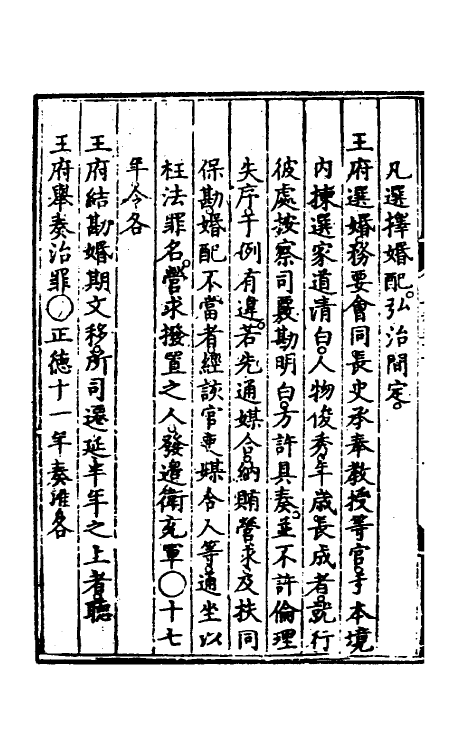 凡選擇婚配。弘治間定。
王府選婚。務要會同長史承奉教授等官。于本境
內揀選家道清白。人物俊秀。年歲長成者。就行
彼處按察司覈勘明白。方許具奏。並不許倫理
失序。于例有違。若先通媒合。納賄營求。及扶同
保勘。婚配不當者。經該官吏媒合人等。通坐以
枉法罪名。營求撥置之人。發邊衛充軍○十七
年令各
王府結勘婚期文移。所司遷延半年之上者。聽
王府舉奏治罪○正德十一年奏准。各